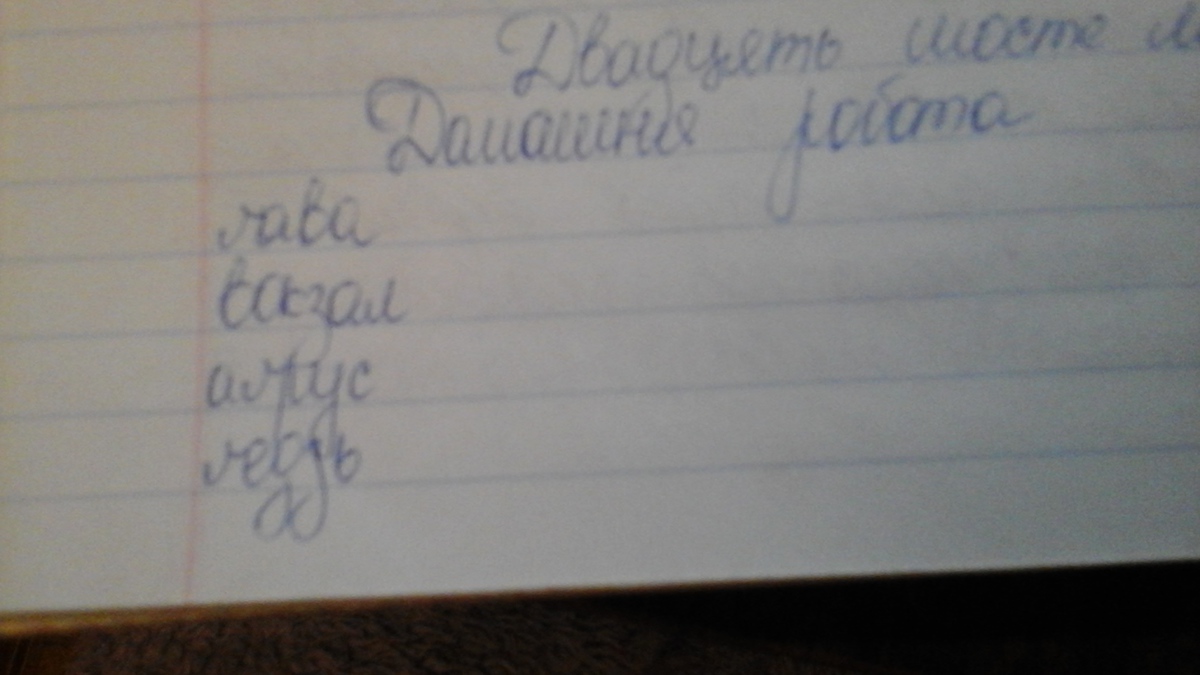 Двадцять шосте
Домашня робота
лава
вокзал
аркус
ледзь